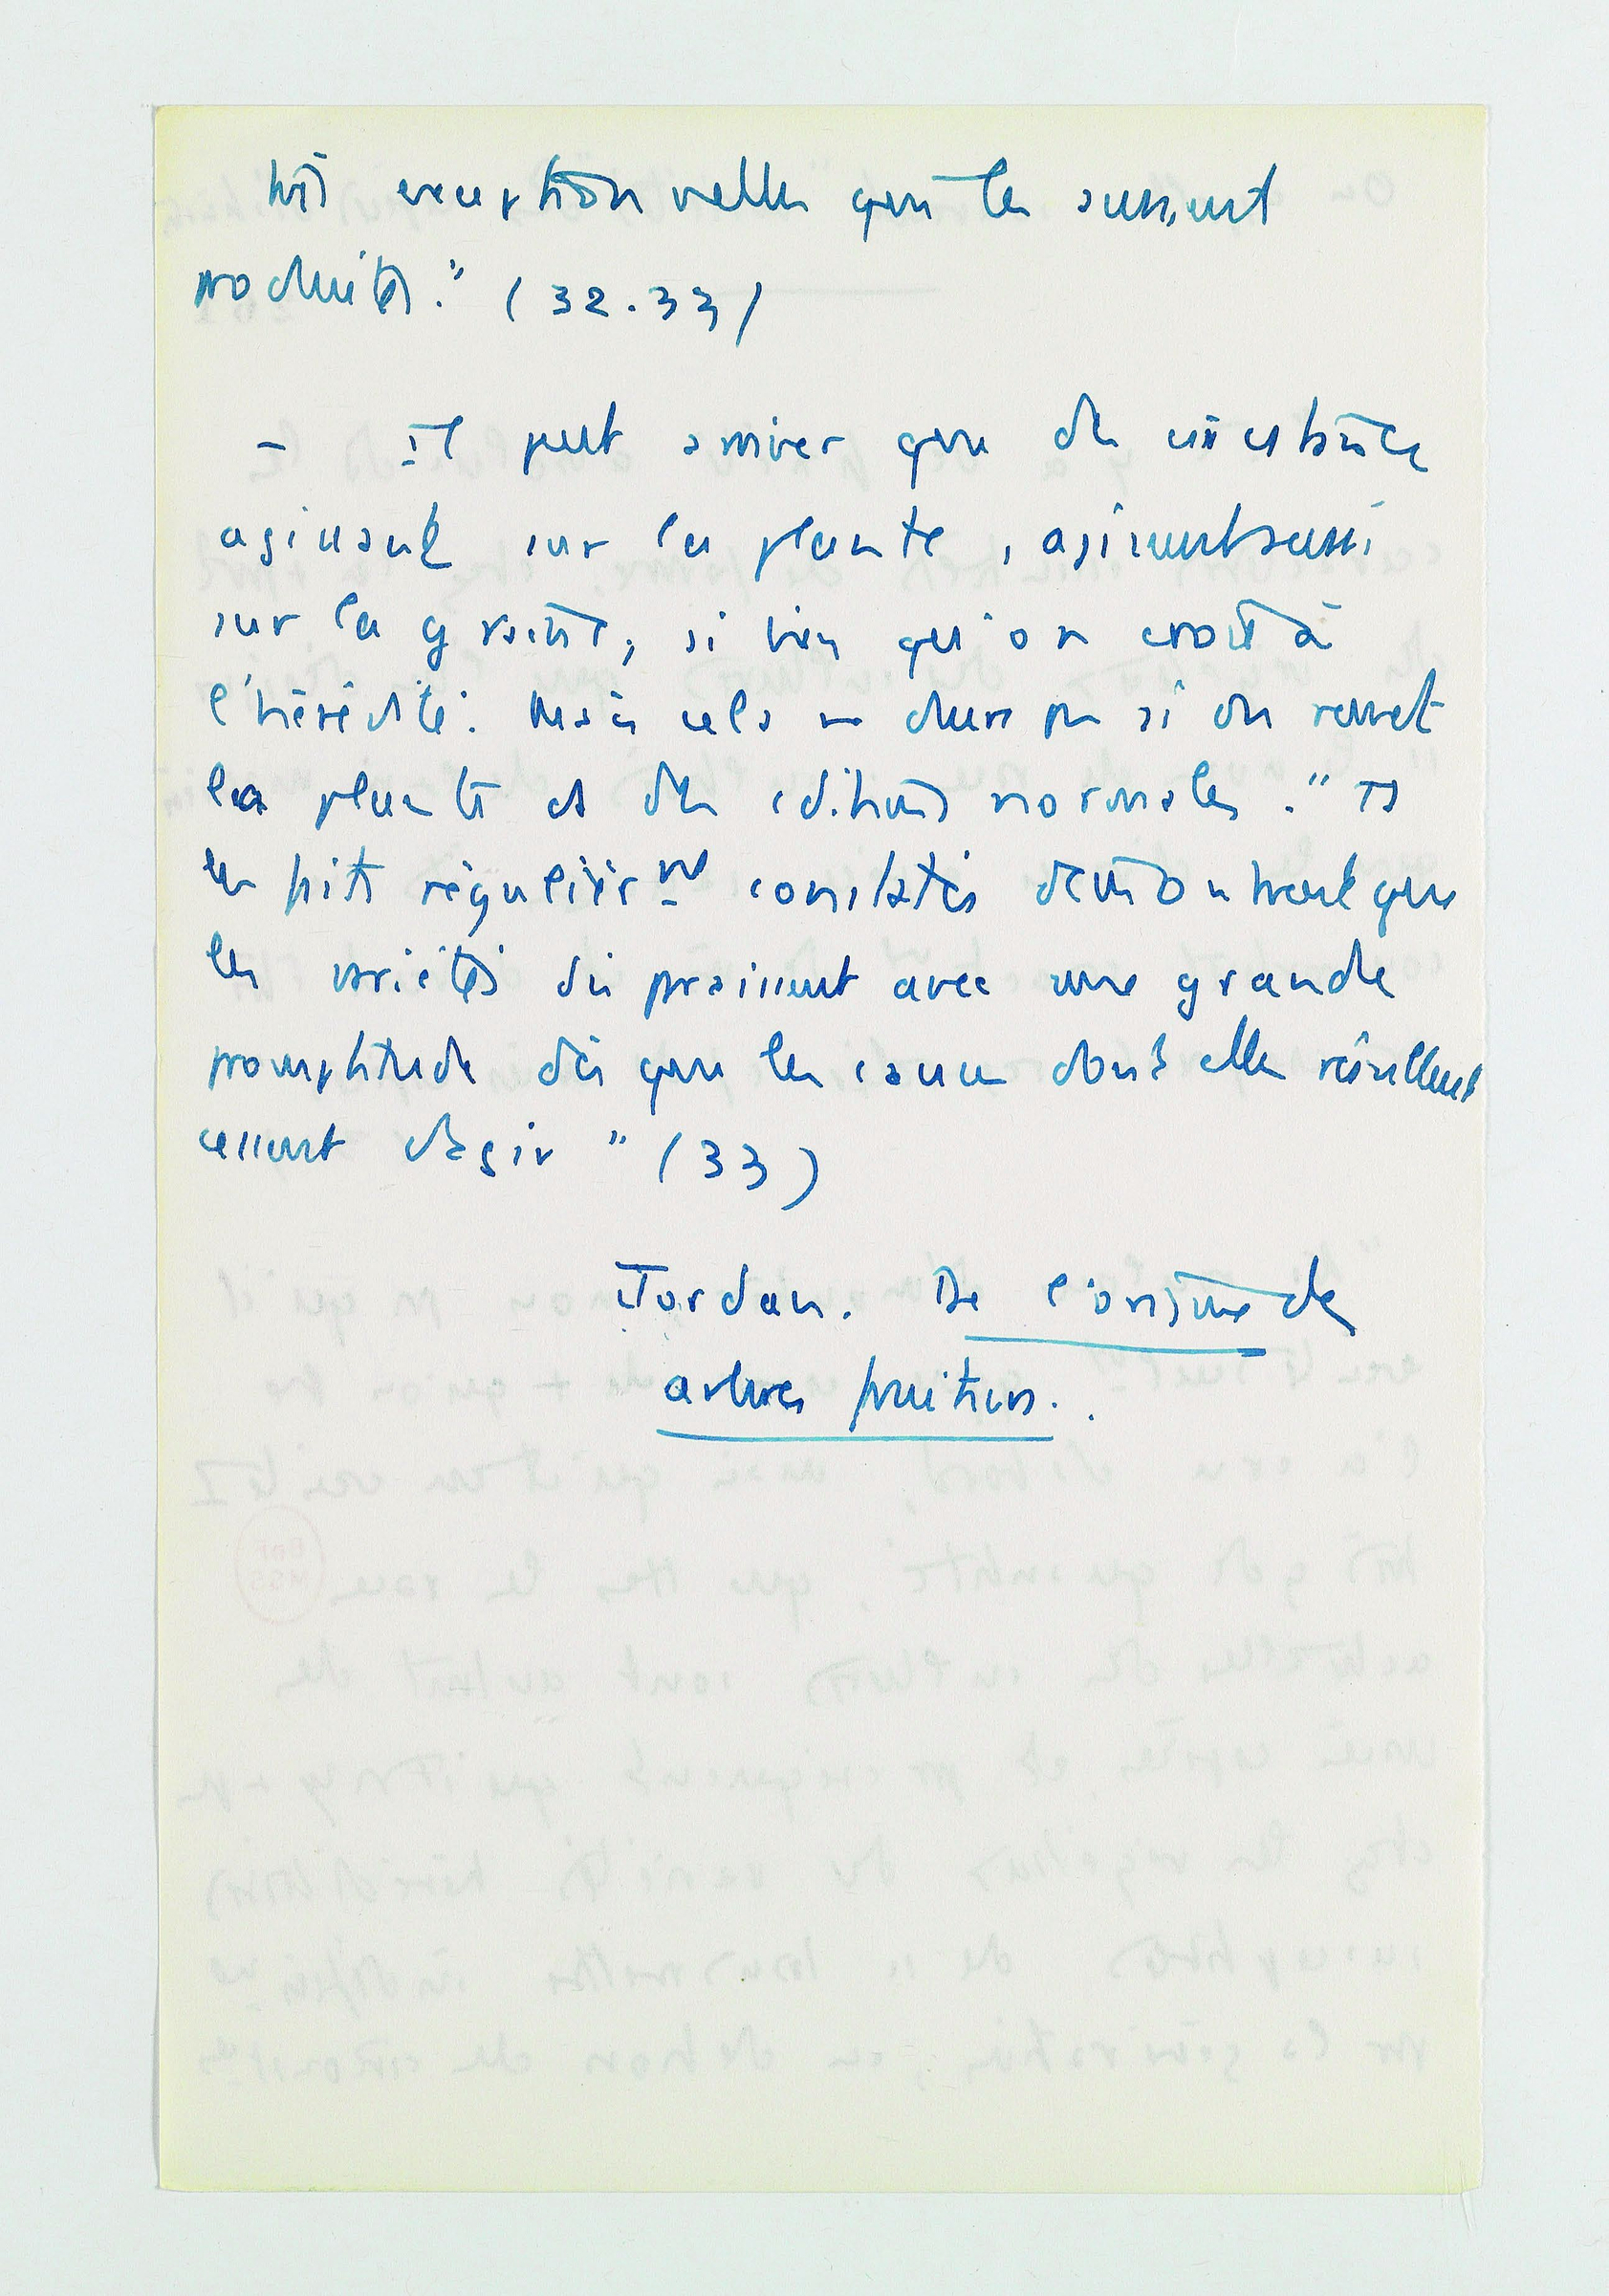 très exceptionnelles qui les eussent
produites." (32.33)
- Il peut arriver que des circstances
agissant sur la plante, agissent aussi
sur la graine, si bien qu'on croit à
l'hérédité. Mais cela ne dure pas si on remet
la plante ds des cditions normales. "Ts
les faits régulièrmt constatés démontrent que
les variétés disparaissent avec une grande
promptitude dès que les causes dont elles résultent
cessent d'agir" (33)
Jordan. De l'origine des
arbres fruitiers.